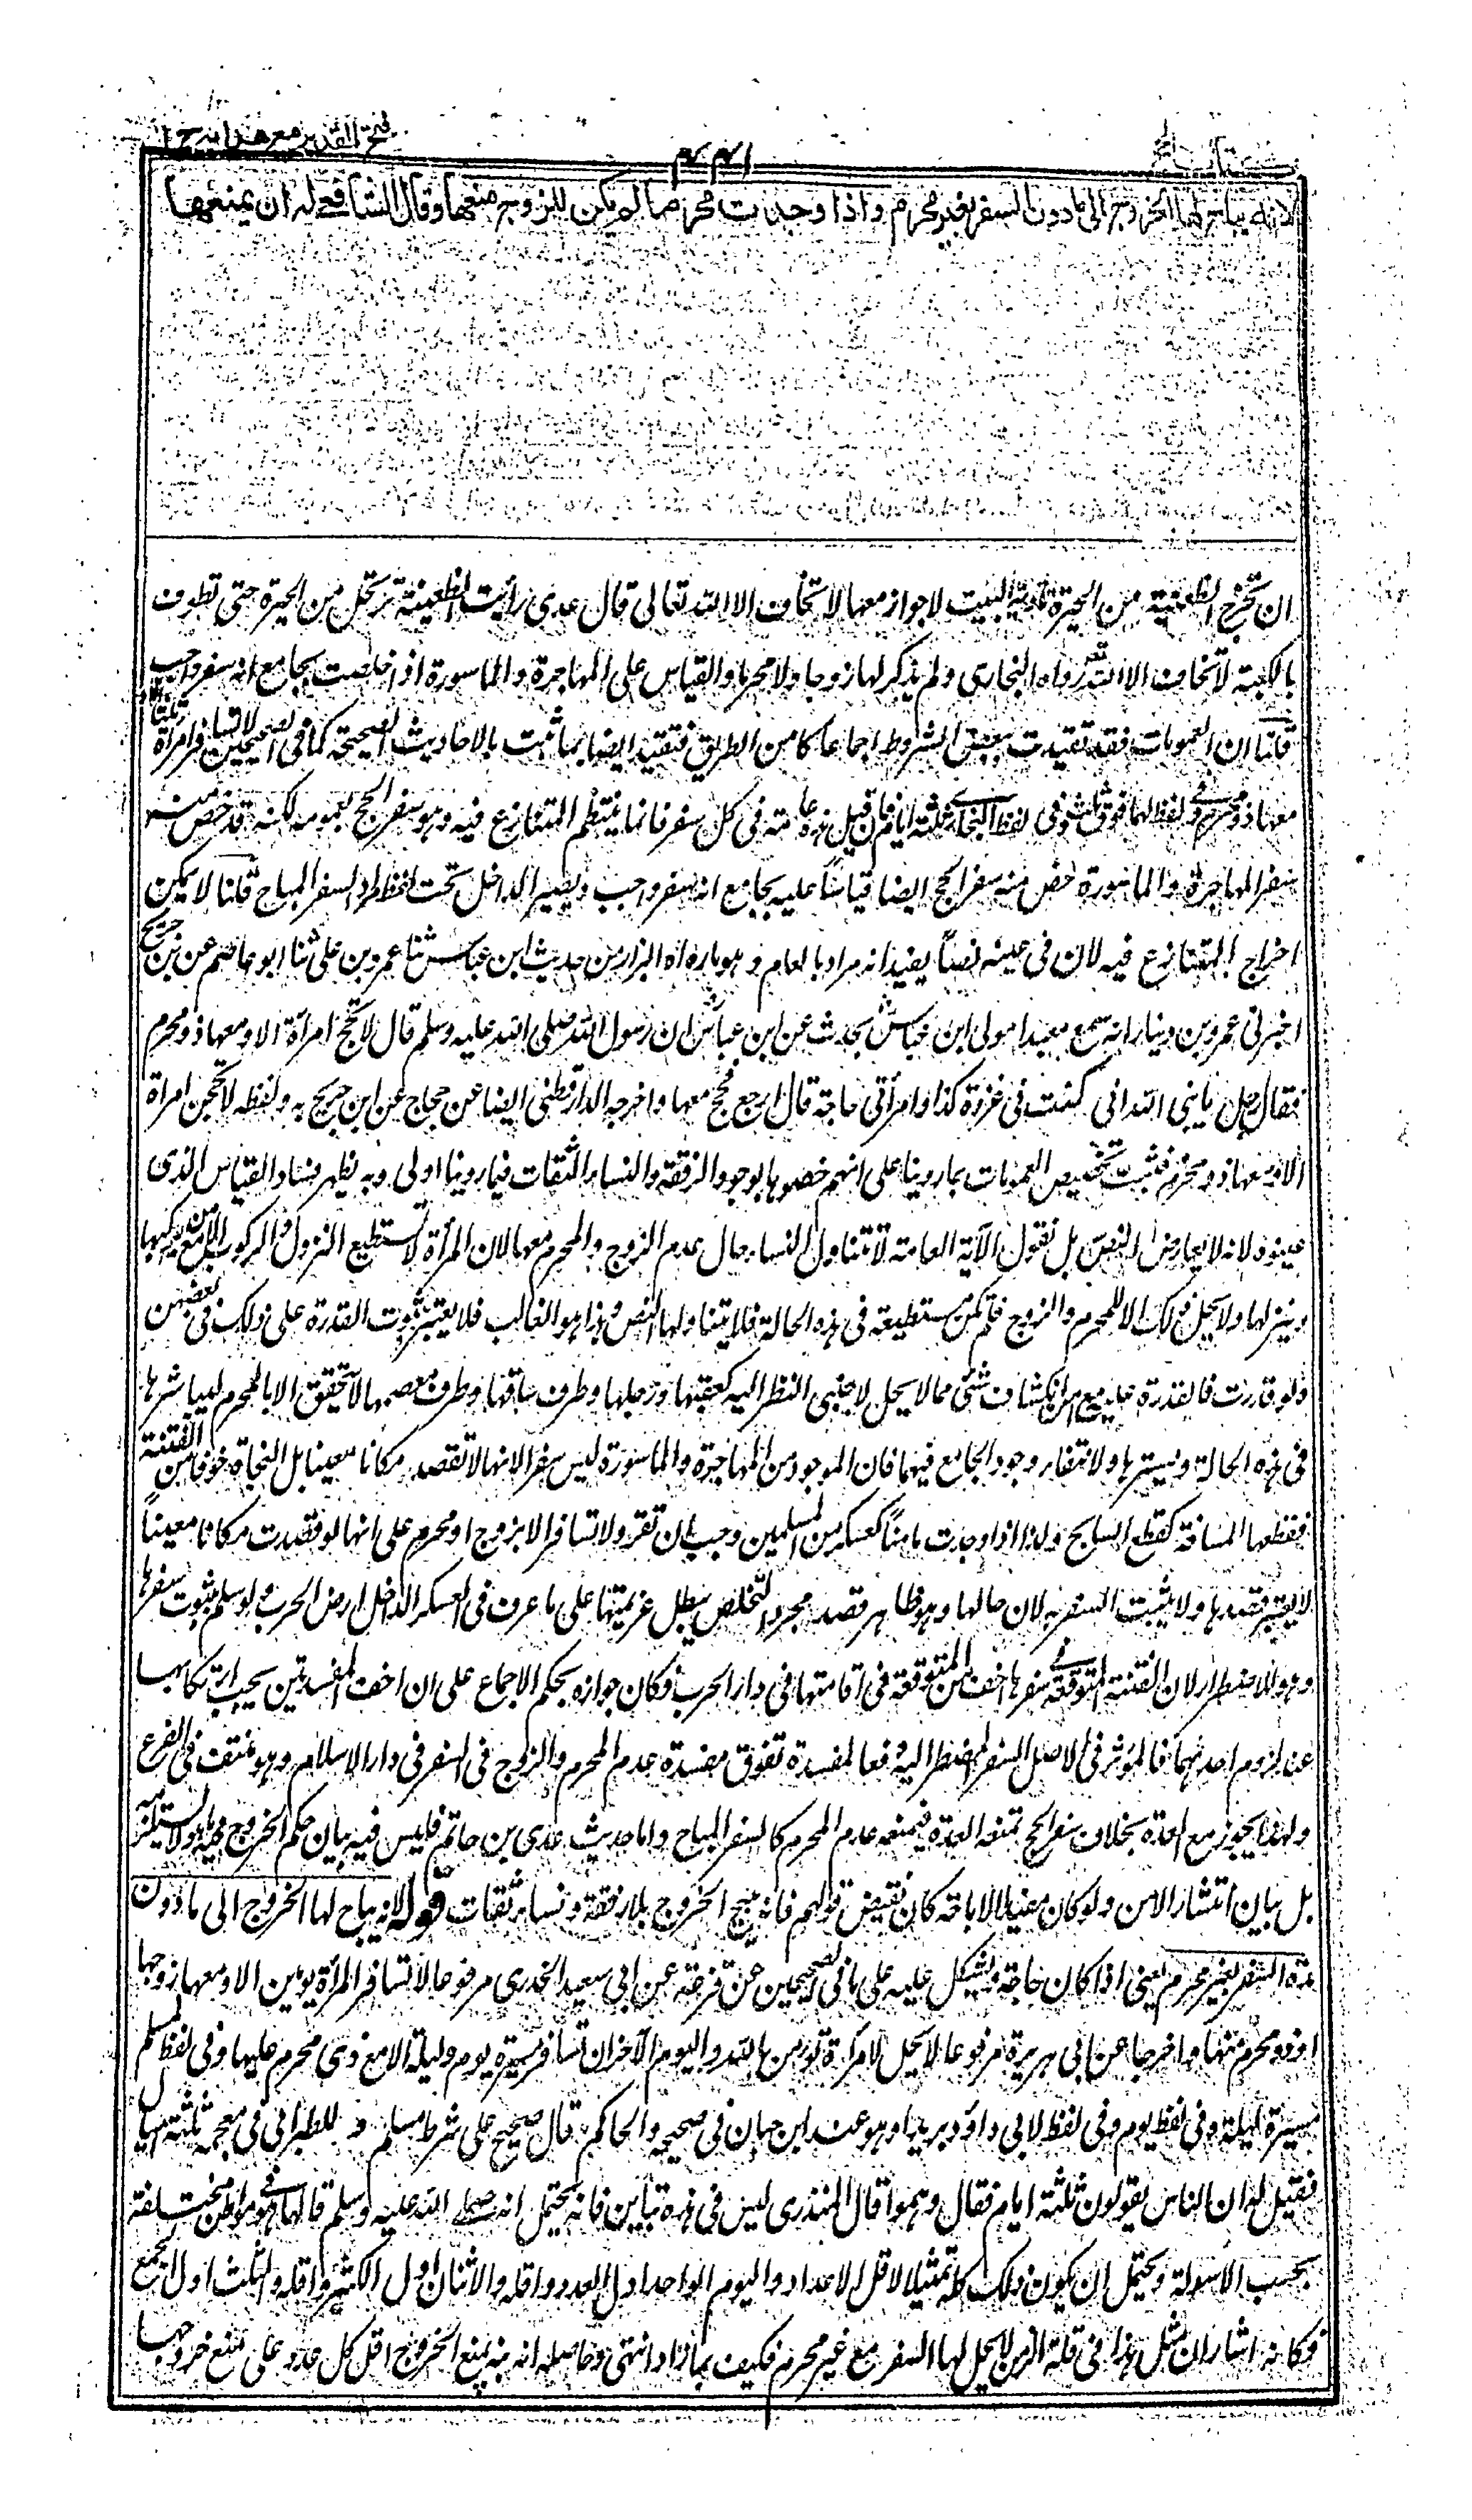 فتح القدير مع هداية ج ا
كتاب الحج
لانه يباح لها الخروج الى ما دون السفر بغير محرم واذا وجدت محرما لم يكن للزوج منعها وقال الشافعي له ان يمنعها
ان تخرج الظعينة من الحيرة تؤم البيت لا جوار معها لا تخاف الا الله تعالى قال عدى رأيت الظعينة ترتحل من الحيرة حتى تطوف
بالكعبة لا تخاف الا الله رواه البخارى ولم يذكر لها زوجا ولا محرما والقياس على المهاجرة والماسورة اذا خلصت بجامع انه سفر واجب
قلنا ان العمومات فقد تقيدت ببعض الشروط اجماعا كامن الطريق فتقيد ايضا بما ثبت بالاحاديث الصحيحة كما فى الصحيحين لا تسافر امرأة ثلثا الا
معها ذو محرم وفى لفظ لهما فوق ثلث وفى لفظ البخارى ثلثة ايام فان قيل هذه عامة فى كل سفر فانما ينتظم المتنازع فيه وهو سفر الحج بعمومه لكنه قد خص منه
سفر المهاجرة والماسورة خص منه سفر الحج ايضا قياسا عليه بجامع انه سفر واجب ويصير الداخل تحت اللفظ مراد السفر المباح قلنا لا يمكن
اخراج المتنازع فيه لان فى عينه نصا يفيد انه مراد بالعام وهو ما رواه البزار من حديث ابن عباس ثنا عمرو بن على ثنا ابو عاصم عن ابن جريج
اخبرنى عمرو بن دينار انه سمع معبدا مولى ابن عباس يحدث عن ابن عباس ان رسول الله صلى الله عليه وسلم قال لا تحج امرأة الا ومعها ذو محرم
فقال رجل يا نبى الله انى كتبت فى غزوة كذا وامرأتى حاجة قال ارجع فحج معها واخرجه الدارقطنى ايضا عن حجاج عن ابن جريج به ولفظه لا تحجن امرأة
الا ومعها ذو محرم فثبت تخصيص العمومات بما روينا على انهم خصوها بوجود الرفقة والنساء الثقات فبما روينا اولى وبه يظهر فساد القياس الذى
عينوه لانه لا يعارض النص بل نقول الآية العامة لا تتناول النساء حال عدم الزوج والمحرم معها لان المرأة لا تستطيع النزول والركوب الا مع من يركبها
وينزلها ولا يحل ذلك الا للمحرم والزوج فلم تكن مستطيعة فى هذه الحالة فلا يتناولها النص وهذا هو الغالب فلا يعتبر ثبوت القدرة على ذلك فى بعضهن
ولو قدرت فالقدرة عليه مع امن انكشاف شئ مما لا يحل لاجنبى النظر اليه كعقبها ورجلها وطرف ساقها وطرف معصمها لا يتحقق الا بالمحرم ليباشرها
فى هذه الحالة ويسترها ولانتفاء وجود الجامع فيهما فان الموجود من المهاجرة والماسورة ليس سفرا لانها لا تقصد مكانا معينا بل النجاة خوفا من الفتنة
فقطعها المسافة كقطع السابح ولذا اذا وجدت مامنا كعسكر من المسلمين وجب ان تقر ولا تسافر الا بزوج او محرم على انها لو قصدت مكانا معينا
لا يعتبر قصدها ولا يثبت السفر به لان حالها وهو ظاهر قصد مجرد التخلص يبطل عزيمتها على ما عرف فى العسكر الداخل ارض الحرب ولو سلم ثبوت سفرها
وهو للاضطرار لان الفتنة المتوقعة فى سفرها اخف من المتوقعة فى اقامتها فى دار الحرب فكان جوازه بحكم الاجماع على ان اخف المفسدتين يجب ارتكابها
عند لزوم احدهما فالمؤثر فى الاصل السفر المضطر اليه دفعا لمفسدة تفوق مفسدة عدم المحرم والزوج فى السفر فى دار الاسلام وهو منتف فى الفرع
ولهذا يجوز مع العدة بخلاف سفر الحج تمنعه العدة فيمنعه عدم المحرم كالسفر المباح واما حديث عدى بن حاتم فليس فيه بيان حكم الخروج فيه ما هو ولا يستلزمه
بل بيان انتشار الامن ولو كان مفيدا للاباحة كان نقيض قولهم فانه يبيح الخروج بلا رفقة ونساء ثقات قوله لانه يباح لها الخروج الى ما دون
مدة السفر بغير محرم يعنى اذا كان حاجة ويشكل عليه على ما فى الصحيحين عن قزعة عن ابى سعيد الخدرى مرفوعا لا تسافر المرأة يومين الا ومعها زوجها
او ذو محرم منها واخرجا عن ابى هريرة مرفوعا لا يحل لامرأة تؤمن بالله واليوم الآخر ان تسافر مسيرة يوم وليلة الا مع ذى محرم عليها وفى لفظ لمسلم
مسيرة ليلة وفى لفظ يوم وفى لفظ لابى داؤد بريدا وهو عند ابن حبان فى صحيحه والحاكم قال صحيح على شرط مسلم وللطبرانى فى معجمه ثلثة اميال
فقيل له ان الناس يقولون ثلثة ايام فقال وهموا قال المنذرى ليس فى هذه تباين فانه يحتمل انه صلى الله عليه وسلم قالها فى مواطن مختلفة
بحسب الاسولة ويحتمل ان يكون ذلك كله تمثيلا لاقل الاعداد واليوم الواحد اول العدد واقله والاثنان اول الكثير واقله والثلث اول الجمع
فكانه اشار ان مثل هذا فى قلة الزمن لا يحل لها السفر مع غير محرم فكيف بما زاد انتهى وحاصله انه نبه بمنع الخروج اقل كل عدد على منع خروجها